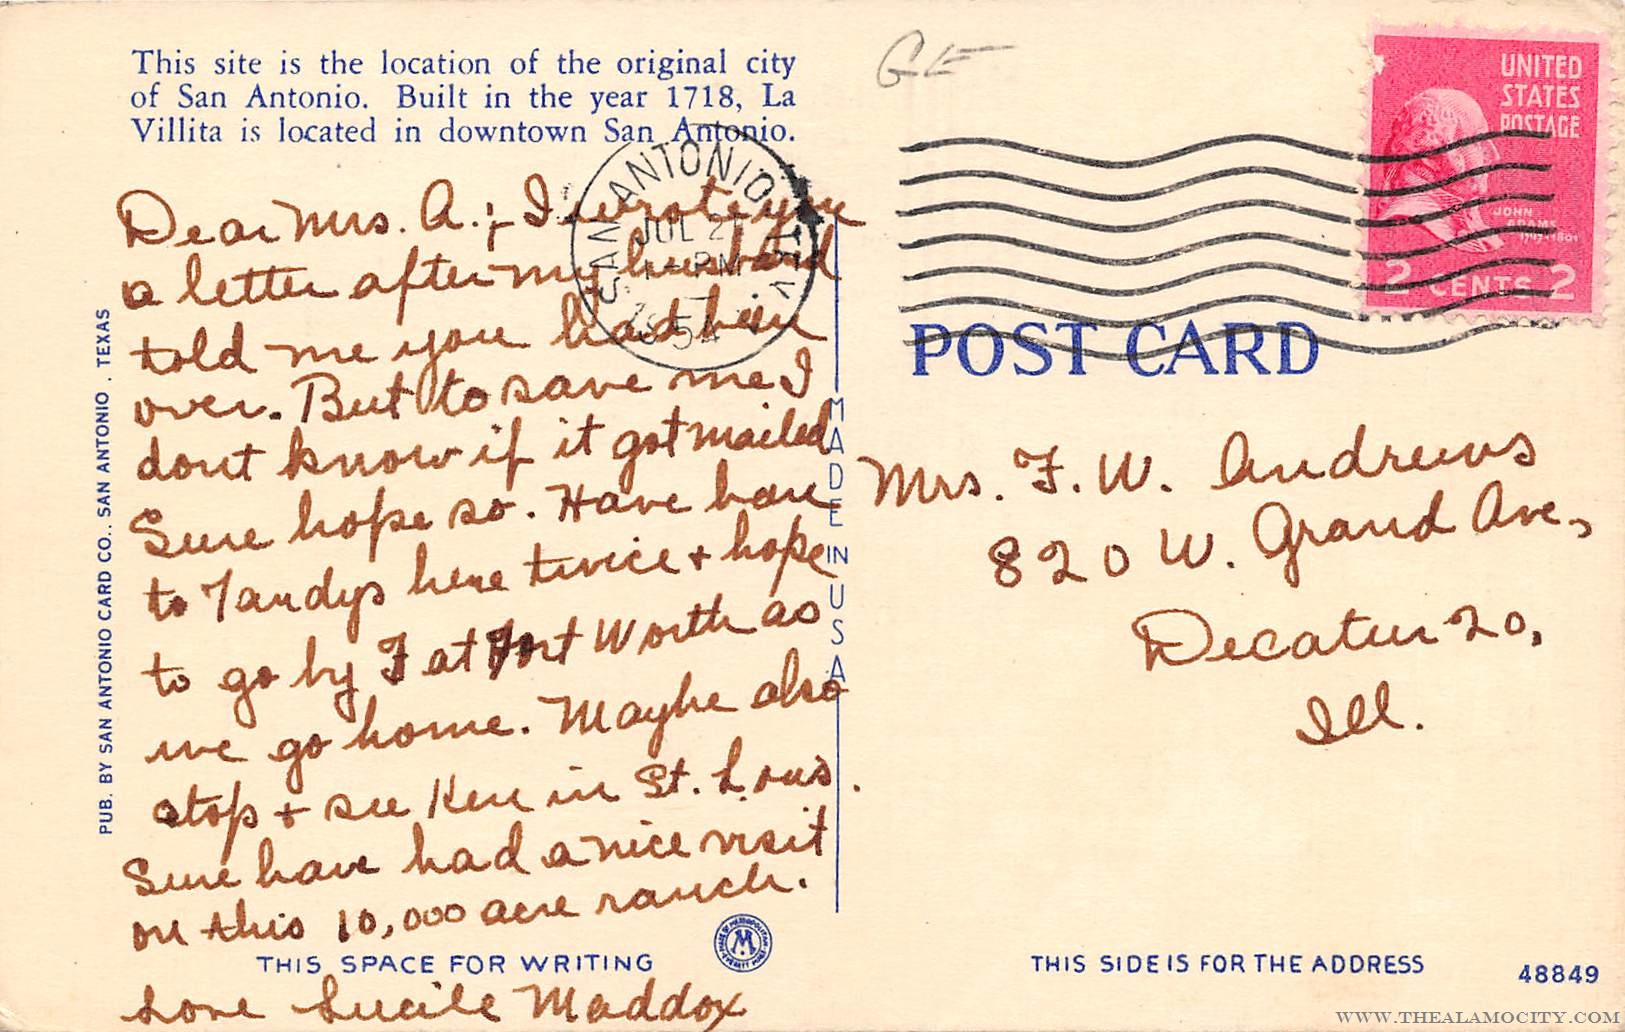 This site is the location of the original city
of San Antonio. Built in the year 1718, La
Villita is located in downtown San Antonio.
Dear Mrs. A.; I wrote you
a letter after my husband
told me you had been
over. But to save me I
dont know if it got mailed
Sure hope so. Have been
to Tandys here twice + hope
to go by F at Fort Worth as
we go home. Maybe also
stop + see Ken in St. Lous.
Sure have had a nice visit
on this 10,000 acre ranch.
THIS SPACE FOR WRITING
Love Lucile Maddox
PUB. BY SAN ANTONIO CARD CO., SAN ANTONIO, TEXAS
MADE IN USA
SAN ANTONIO
JUL 2
PM
54
GE
UNITED
STATES
POSTAGE
JOHN
ADAMS
1797-1801
2 CENTS 2
POST CARD
Mrs. F. W. Andrews
820 W. Grand Ave.,
Decatur 20,
Ill.
M
THIS SIDE IS FOR THE ADDRESS
48849
WWW.THEALAMOCITY.COM